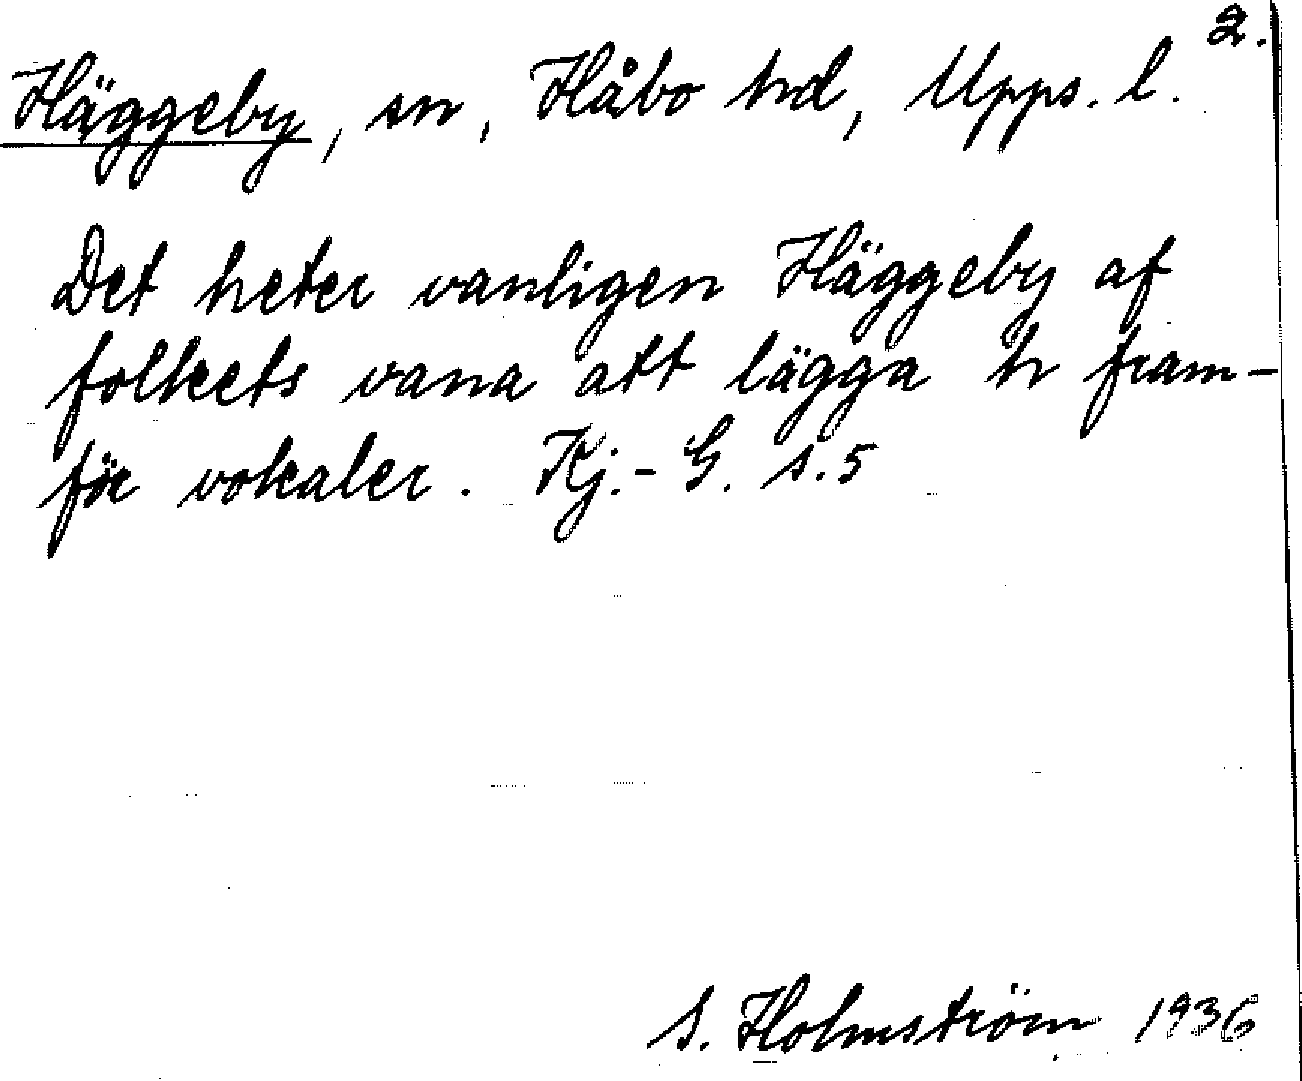 2.
Häggeby, sn, Håbo hd, Upps. l.
Det heter vanligen Häggeby af
folkets vana att lägga h fram-
för vokaler. Kj.- G. s. 5
S. Holmström 1936